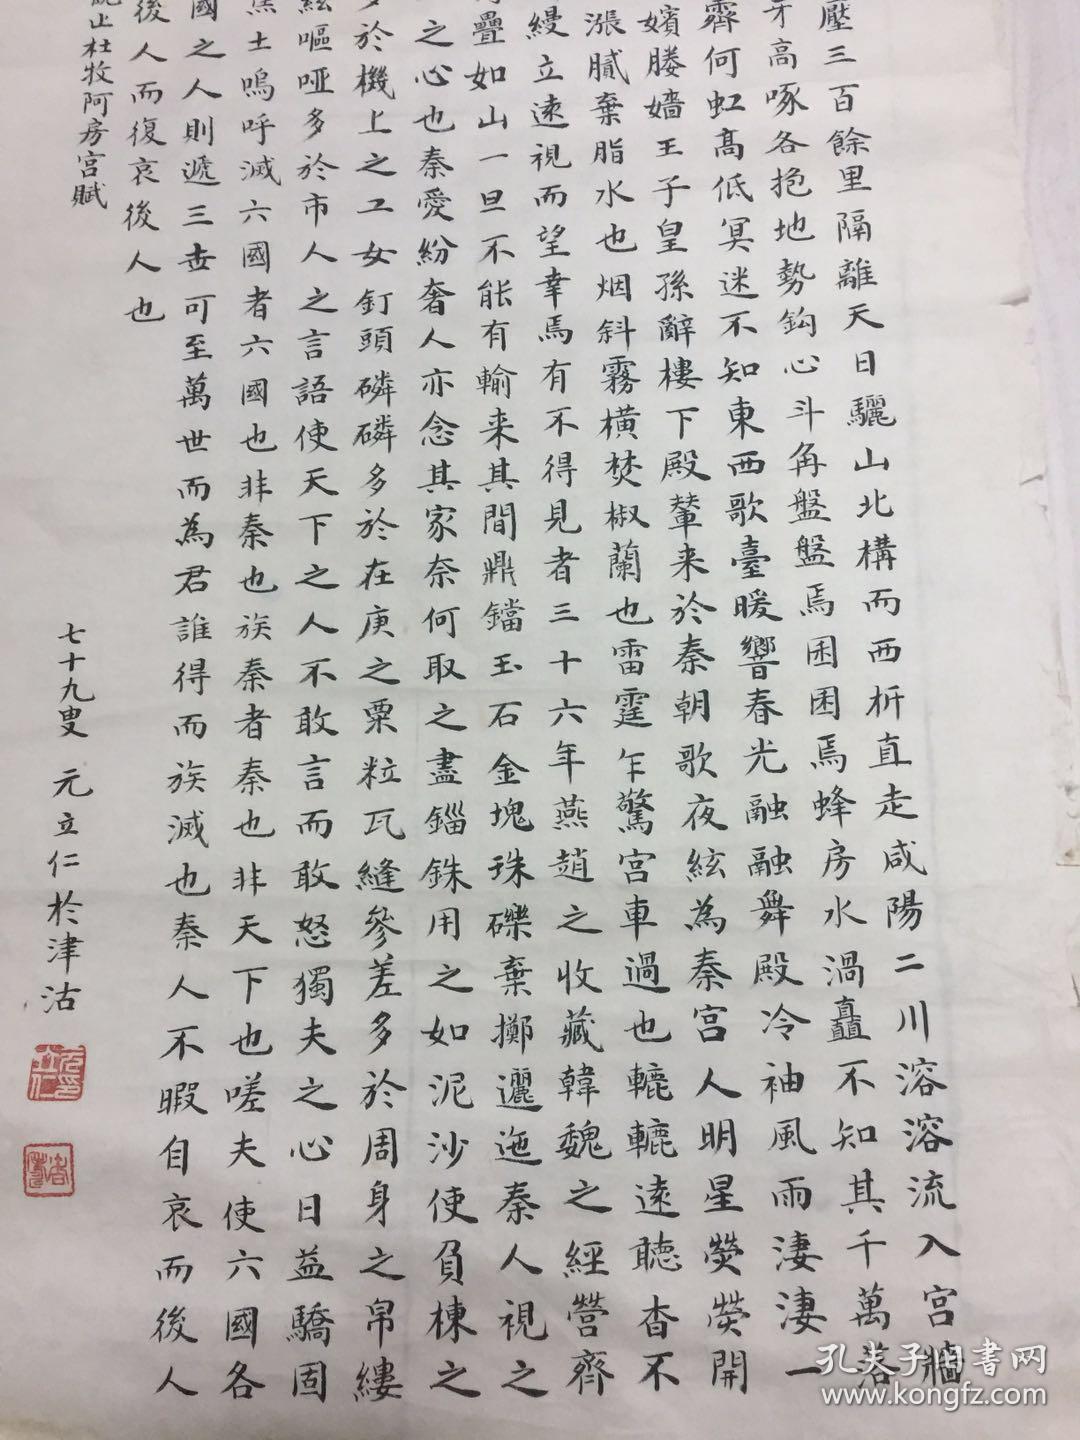 壓三百餘里隔離天日驪山北構而西折直走咸陽二川溶溶流入宮牆
牙高啄各抱地勢鈎心斗角盤盤焉囷囷焉蜂房水渦矗不知其千萬落
霽何虹高低冥迷不知東西歌臺暖響春光融融舞殿冷袖風雨淒淒一
嬪媵嬙王子皇孫辭樓下殿輦来於秦朝歌夜絃為秦宮人明星熒熒開
漲膩棄脂水也烟斜霧橫焚椒蘭也雷霆乍驚宮車過也轆轆遠聽杳不
縵立遠視而望幸焉有不得見者三十六年燕趙之收藏韓魏之經營齊
疊如山一旦不能有輸来其間鼎鐺玉石金塊珠礫棄擲邐迤秦人視之
之心也秦愛紛奢人亦念其家奈何取之盡錙銖用之如泥沙使負棟之
多於機上之工女釘頭磷磷多於在庾之粟粒瓦縫參差多於周身之帛縷
絃嘔啞多於市人之言語使天下之人不敢言而敢怒獨夫之心日益驕固
焦土嗚呼滅六國者六國也非秦也族秦者秦也非天下也嗟夫使六國各
國之人則遞三世可至萬世而為君誰得而族滅也秦人不暇自哀而後人
後人而復哀後人也
止杜牧阿房宮賦
七十九叟 元立仁於津沽
孔夫子旧書网
www.kongfz.com